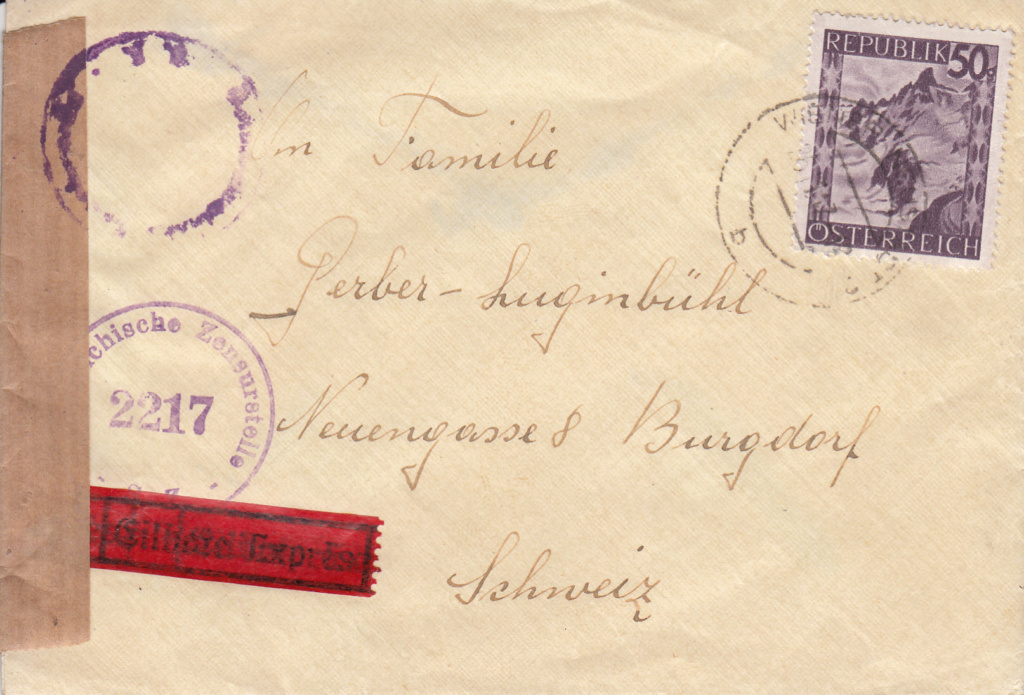 REPUBLIK 50g
ÖSTERREICH
An Familie
Gerber-Luginbühl
Neuengasse 8 Burgdorf
Schweiz
chische Zensurstelle
2217
Eilbote Exprès